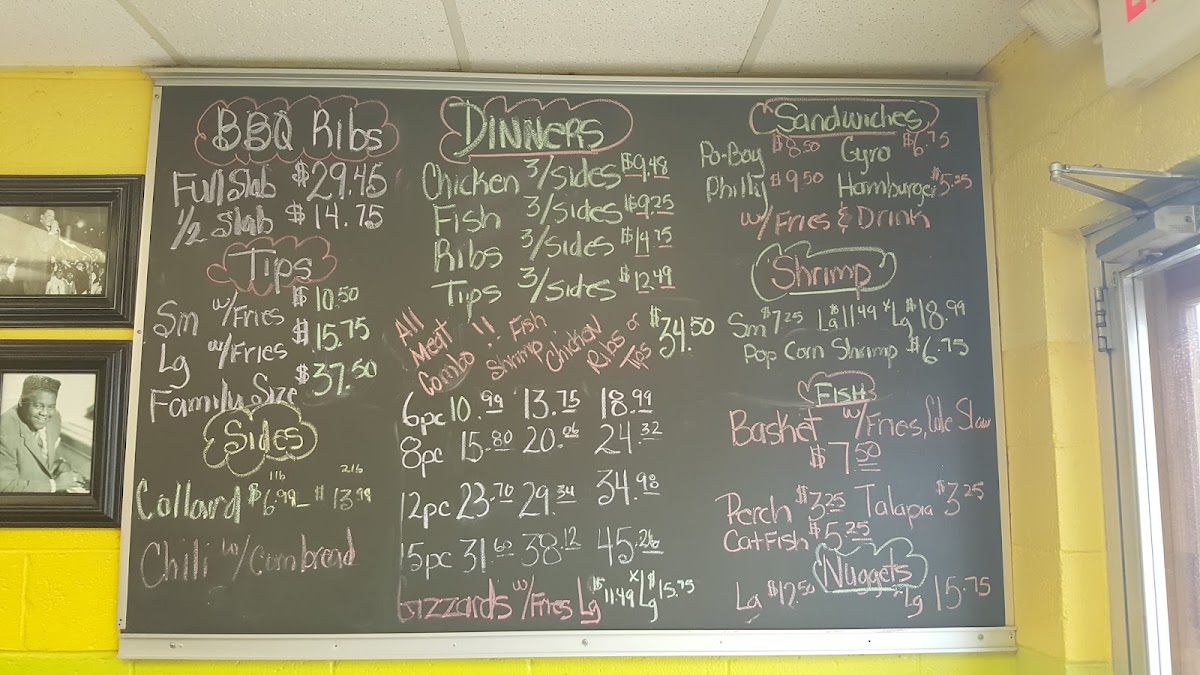 BBQ Ribs
Full Slab $29.45
1/2 Slab $14.75
Tips
Sm w/Fries $10.50
Lg w/Fries $15.75
Family Size $37.50
Sides
1lb 2lb
Collard $6.99 $13.99
Chili w/ Cornbread
DINNERS
Chicken 3/Sides $9.48
Fish 3/Sides $9.25
Ribs 3/Sides $14.75
Tips 3/Sides $12.49
All Meat Combo !! Fish Shrimp Chicken Ribs or Tips $34.50
6pc 10.99 13.75 18.99
8pc 15.80 20.06 24.32
12pc 23.70 29.34 34.98
15pc 31.60 38.12 45.26
Gizzards w/Fries Lg $11.49 xLg $15.75
Sandwiches
Po-Boy $8.50 Gyro $6.75
Philly $9.50 Hamburger $5.25
w/Fries & Drink
Shrimp
Sm $7.25 La $11.49 xLg $18.99
Pop Corn Shrimp $6.75
Fish
Basket w/Fries, Cole Slaw
$7.50
Perch $3.25 Talapia $3.25
CatFish $5.25
Nuggets
La $12.50 Lg 15.75